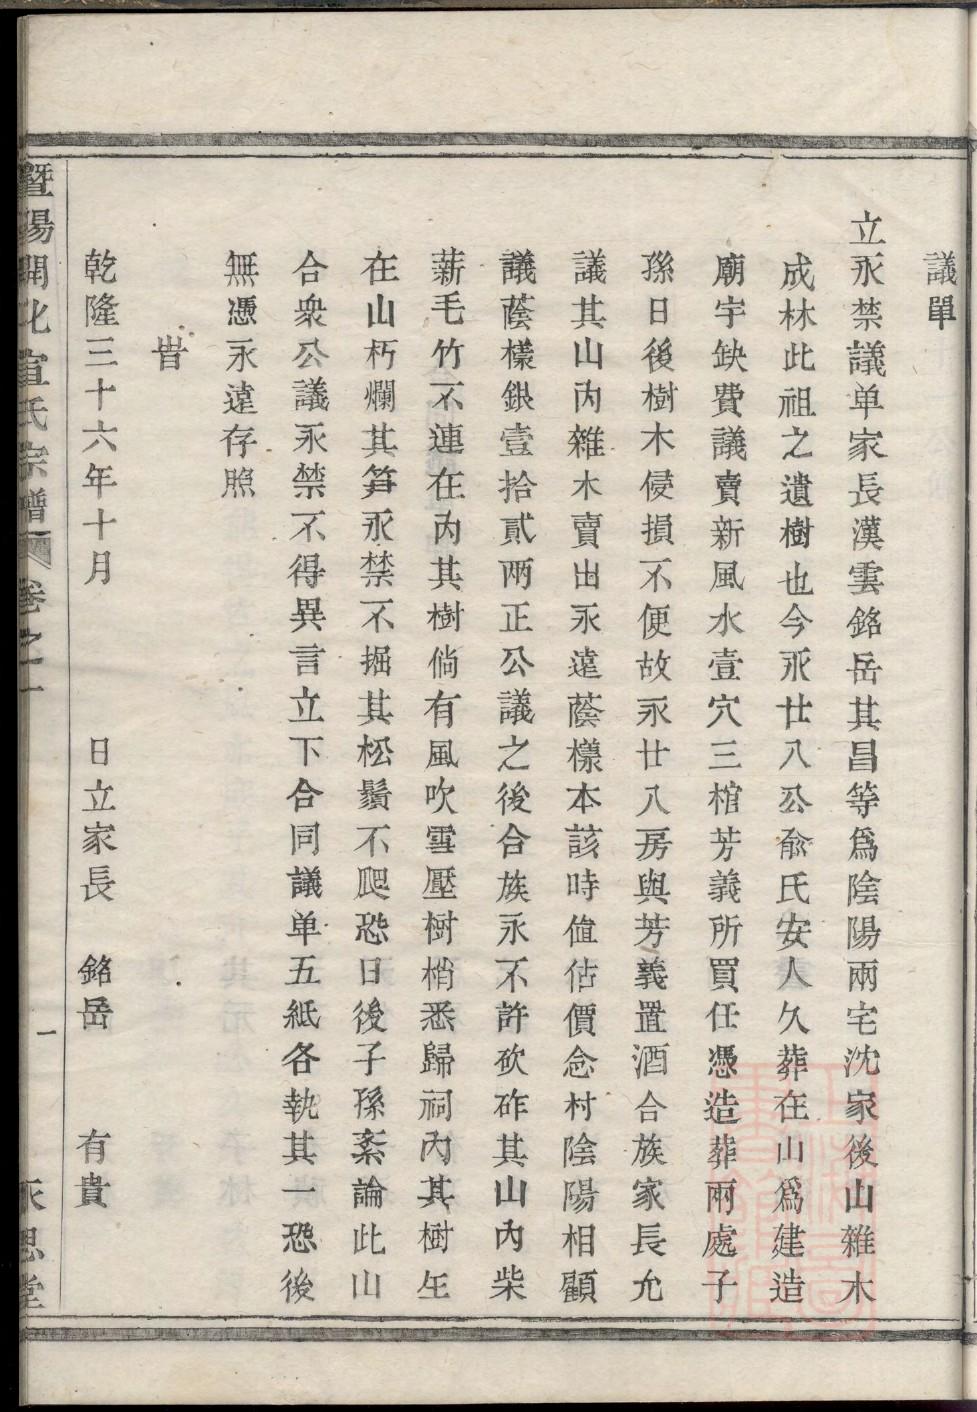 議單
立永禁議单家長漢雲銘岳其昌等爲陰陽兩宅沈家後山雜木
成林此祖之遺樹也今永廿八公兪氏安人久葬在山爲建造
廟宇缺費議賣新風水壹穴三棺芳義所買任憑造葬兩處子
孫日後樹木侵損不便故永廿八房與芳義置酒合族家長允
議其山內雜木賣出永遠蔭樣本該時值估價念村陰陽相顧
議蔭樣銀壹拾貳兩正公議之後合族永不許砍砟其山內柴
薪毛竹不連在內其樹倘有風吹雪壓樹梢悉歸祠內其樹生
在山朽爛其笋永禁不掘其松鬚不爬恐日後子孫紊論此山
合衆公議永禁不得異言立下合同議单五紙各執其一恐後
無憑永遠存照
旹
乾隆三十六年十月 日立家長 銘岳 有貴
暨陽開化宣氏宗譜 卷之一 一 永思堂